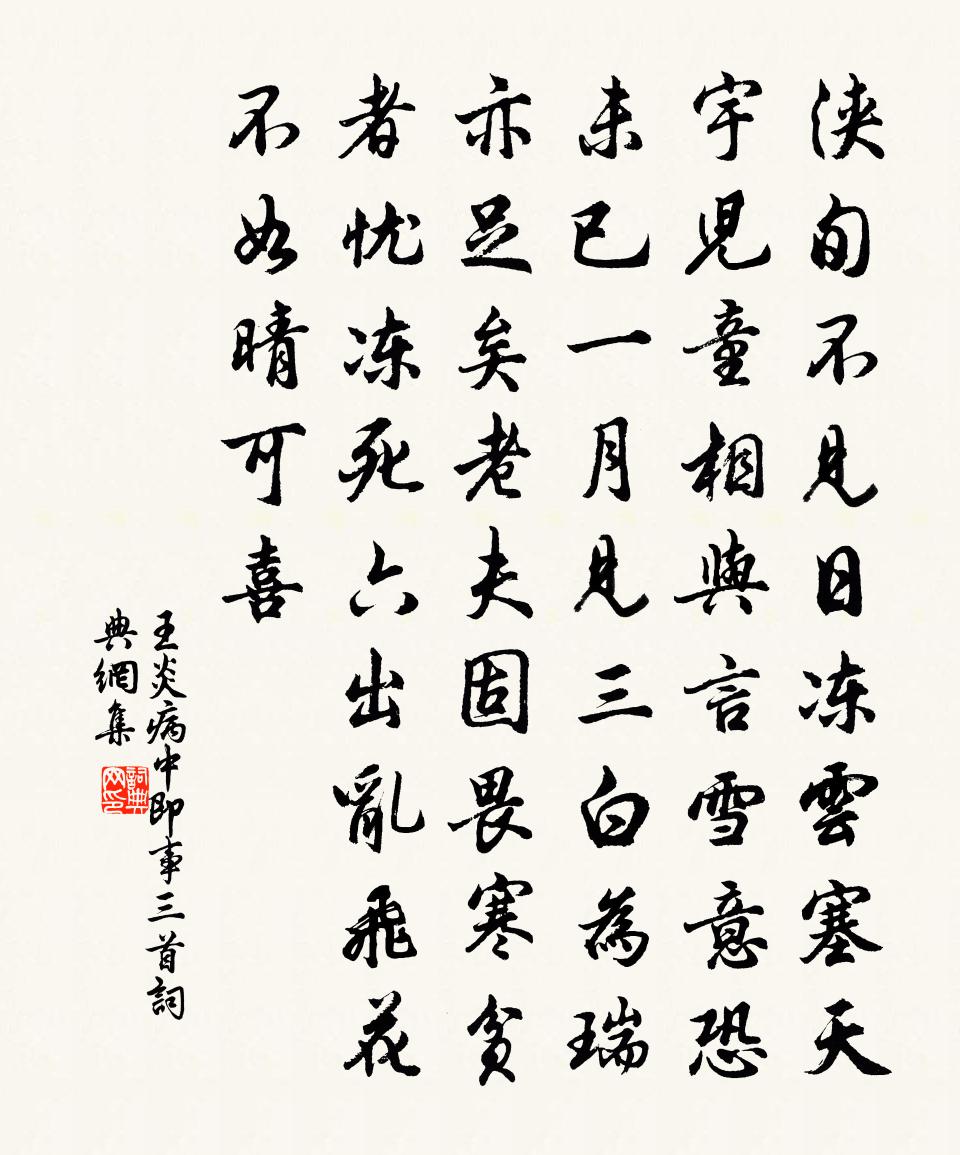 浹旬不見日冻雲塞天
宇児童相與言雪意恐
未已一月見三白為瑞
亦足矣老夫固畏寒貧
者忧冻死六出亂飛花
不如晴可喜
王炎病中即事三首詞
典網集
詞典網印